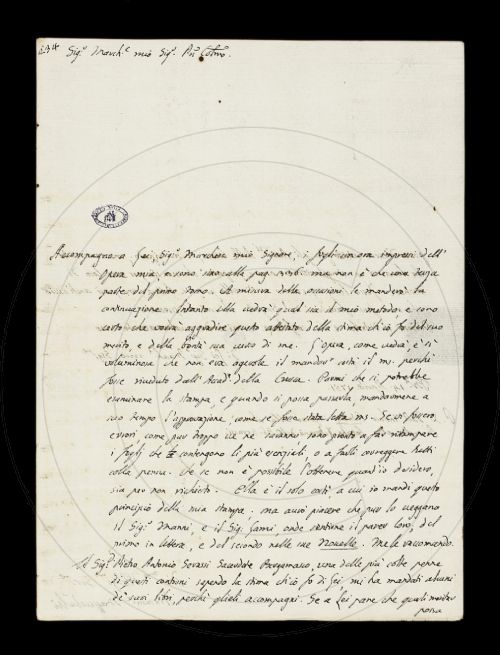 Sig.r March.e mio Sig.r Pn Colmo.
Accompagno a Lei, Sig.r Marchese mio Signore, i fogli sin ora impressi dell'
Opera mia, e sono sino alla pag. ma non è che una terza
parte del primo tomo. A misura delle occasioni le manderò la
continuazione. Intanto ella vedrà qual sia il mio metodo: e sono
certo che vorrà aggradire questo attestato della stima ch'io fo del suo
merito, e della bontà sua verso di me. L'opera, come vedrà, è sì
voluminosa che non era agevole il mandar costì il ms. perchè
fosse riveduto dall'Acad.a della Crusca. Parmi che si potrebbe
esaminare la stampa, e quando si possa passarla, mandarmene a
suo tempo l'approvazione, come se fosse stata letta ms. Se vi fossero
errori come pur troppo ve ne saranno sono pronto a far ristampare
i fogli che contengono li più essenziali, o a farli correggere tutti
colla penna. Se se non è possibile l'ottenere quanto io desidero,
sia per non richiesto. Ella è il solo costì, a cui io mandi questo
principio della mia stampa. ma avrò piacere che pur lo veggano
il Sig.r Manni, e il Sig.r Lami, onde sentirne il parer loro, del
primo in lettera, e del secondo nelle sue Novelle. Me le raccomando.
Il Sig.r Pietro Antonio Serassi Sacerdote Bergamasco, una delle più colte penne
di questi contorni sapendo la stima ch'io fo di Lei mi ha mandati alcuni
de' suoi libri, perchè glieli accompagni. Se a Lei pare che questi meritar
possa